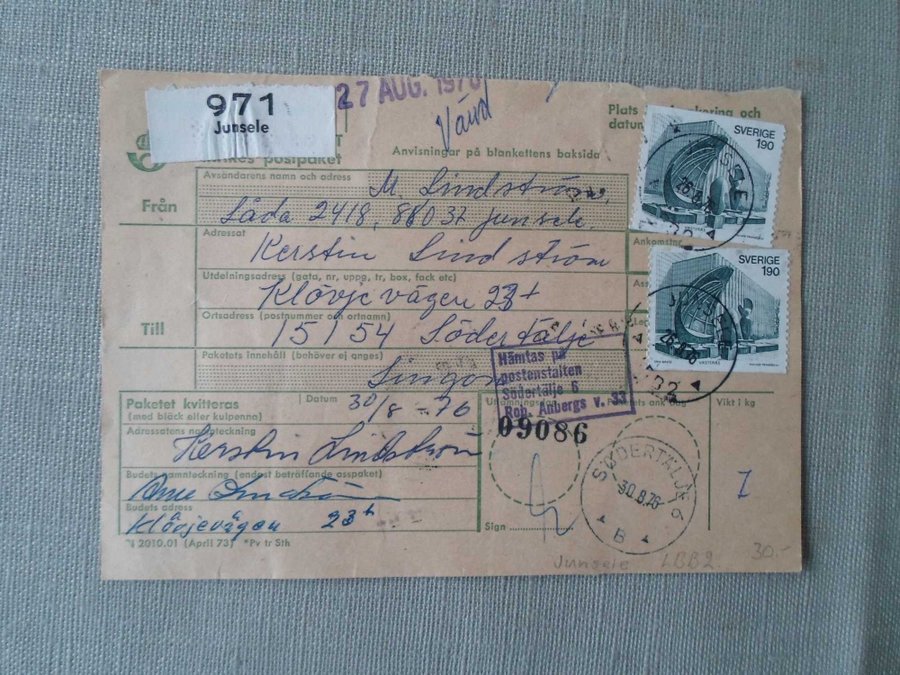 971
Junsele
27 AUG. 1976
Vänd
Plats
och
datum
postpaket
Anvisningar på blankettens baksida
SVERIGE
190
Avsändarens namn och adress
M. Lindström,
Från
Låda 2418, 880 37 Junsele.
Adressat
Ankomstnr
Kerstin Lindström
SVERIGE
190
Utdelningsadress (gata, nr, uppg, tr, box, fack etc)
Klövjevägen 23
Ortsadress (postnummer och ortnamn)
Till
15154 Södertälje
JUNSELE
26.8.76
Paketets innehåll (behöver ej anges)
Lingon
VÄSTERÅS
Hämtas på
postanstalten
Södertälje 6
Rob. Anbergs v. 33
Paketet kvitteras
(med bläck eller kulpenna)
Datum
30/8 -76
Vikt i kg
Adressatens namnteckning
Kerstin Lindström
09086
7
Budets namnteckning (endast beträffande osspaket)
Budets adress
Klövjevägen 23
SÖDERTÄLJE 6
30.8.76
B
Sign
2010.01 (April 73) *Pv tr Sth
Junsele LBB2
30.-